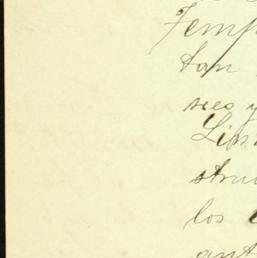 Temp
tan
sees y
Lib
stru
los
ant